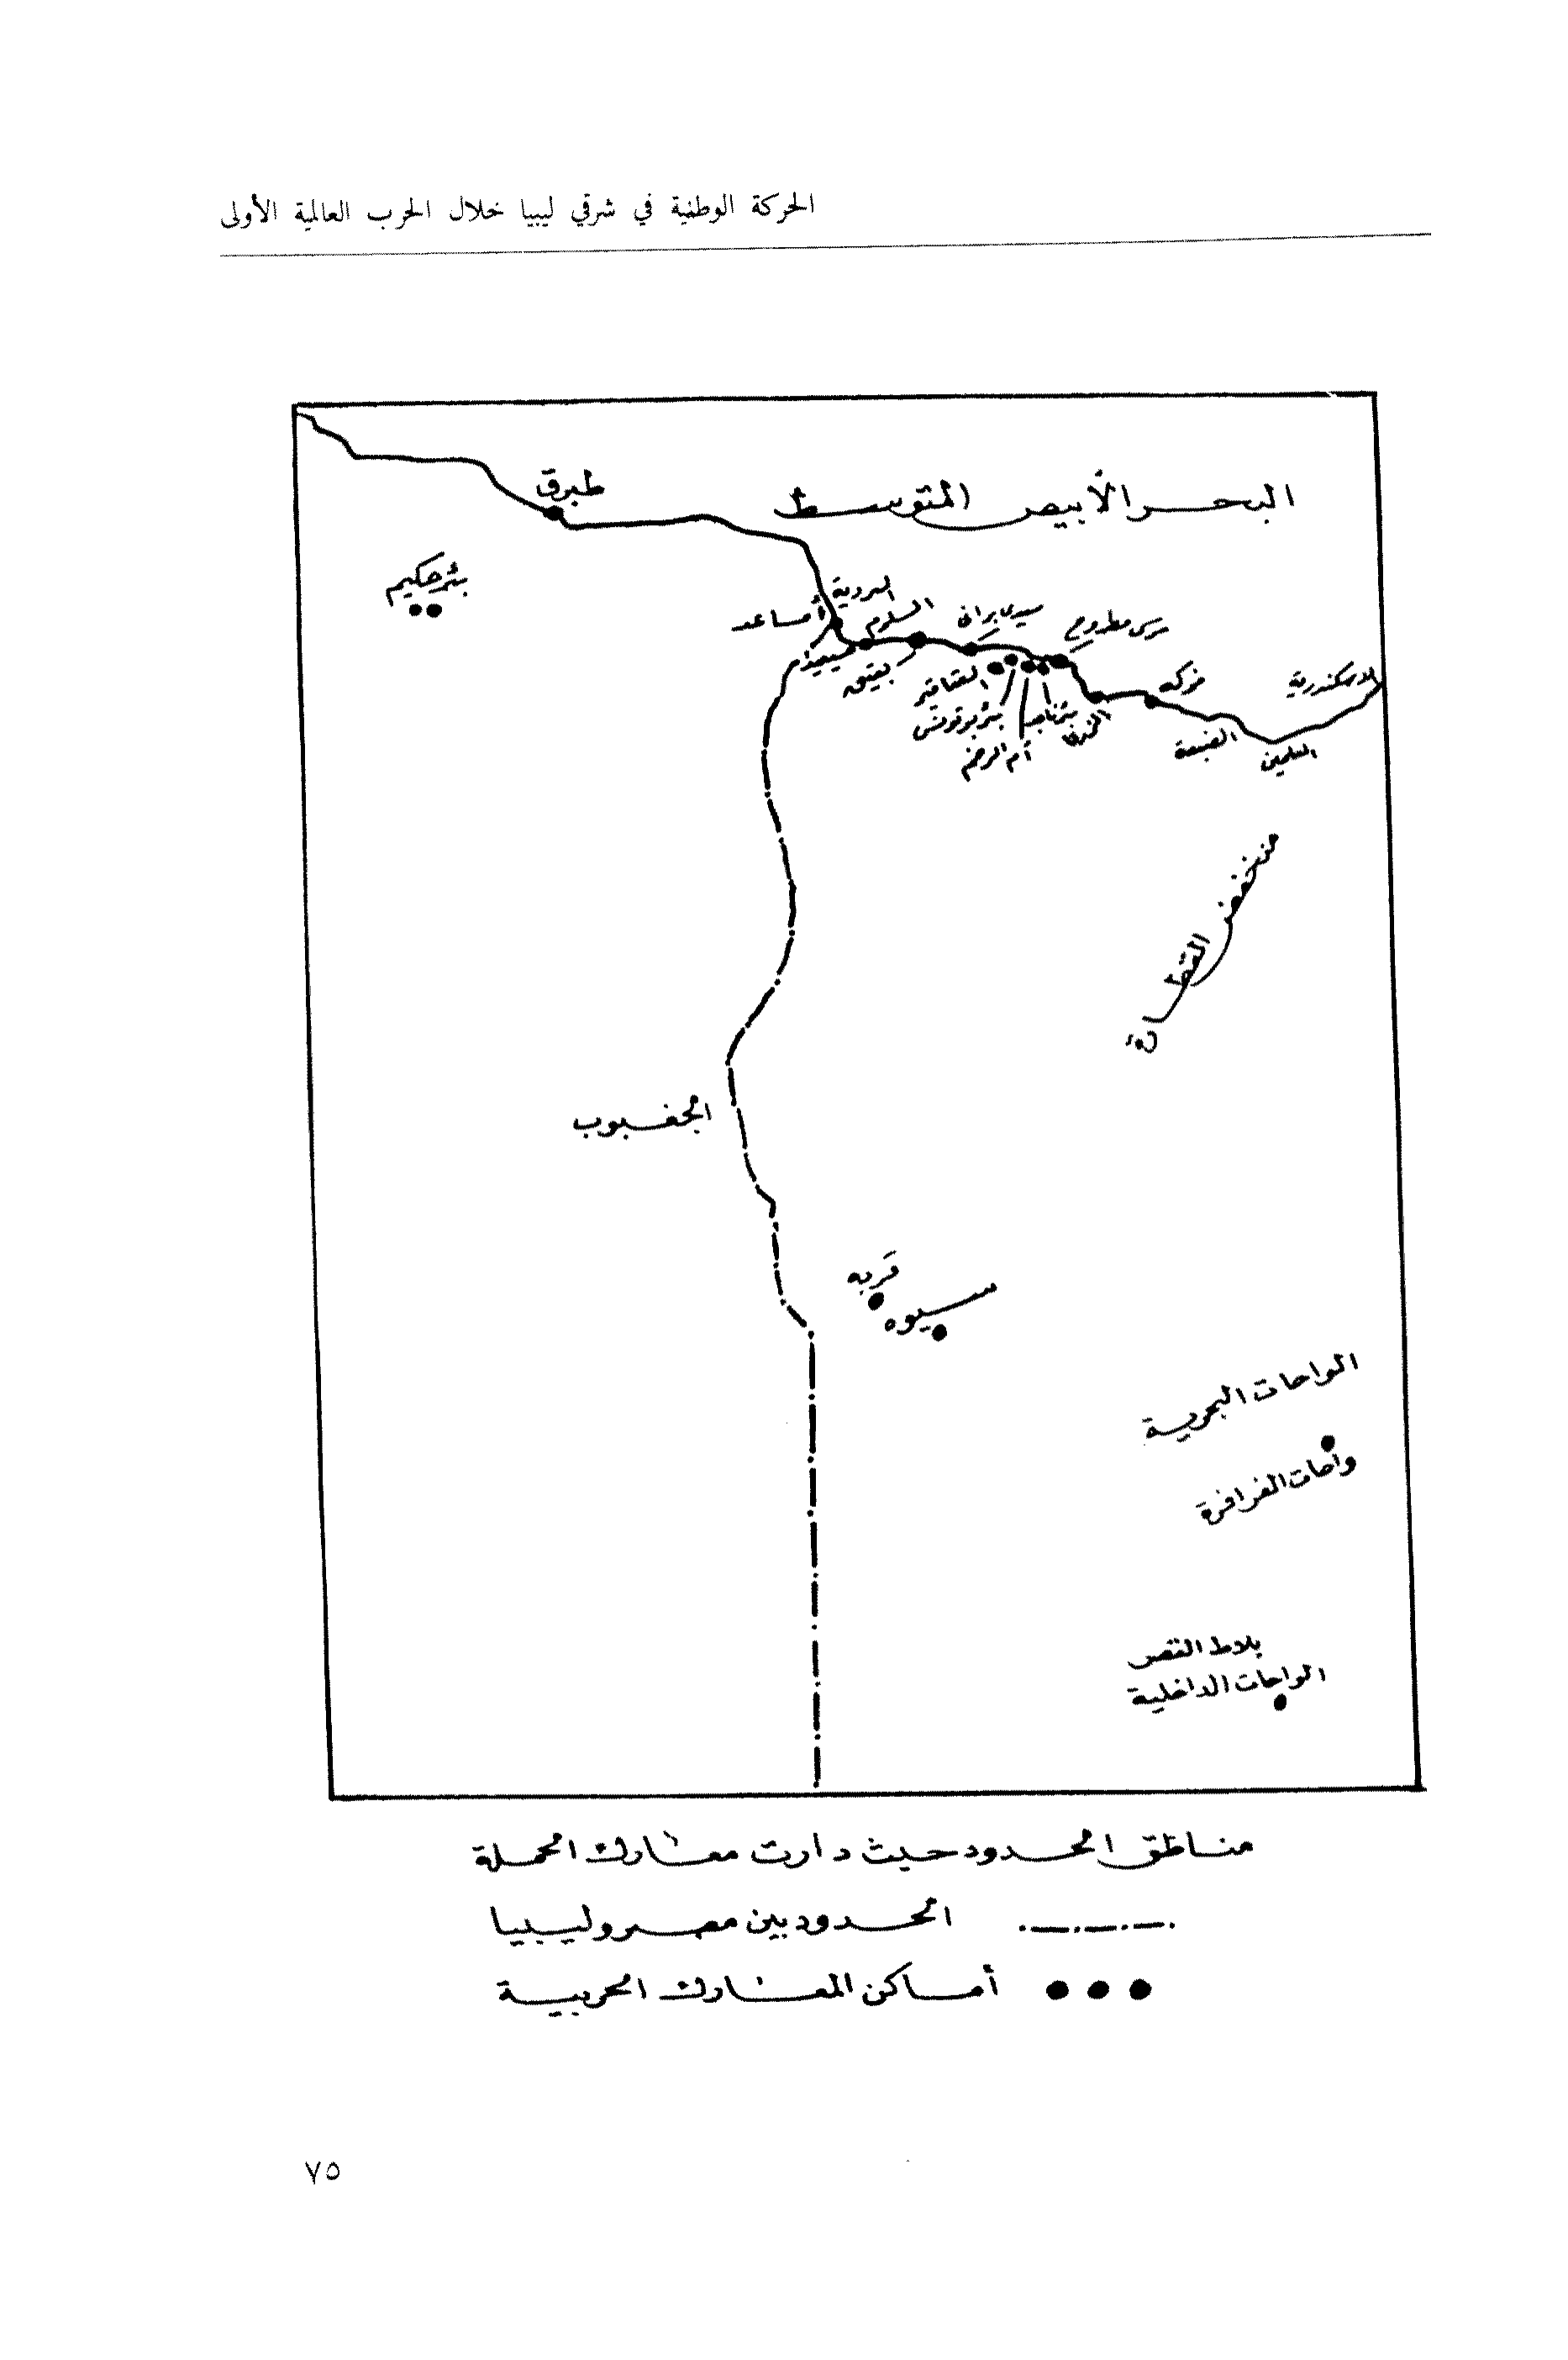 الحركة الوطنية في شرقي ليبيا خلال الحرب العالمية الأولى
طبرق
البحر الأبيض المتوسط
بئر حكيم
البردية
أمساعد
السلوم
سيدي براني
مرسى مطروح
بقبق
العقاقير
بئر تونس
أم الرخم
فوكه
الاسكندرية
الضبعة
العلمين
منخفض القطارة
الجغبوب
قربه
سيوه
الواحات البحرية
واحات الفرافرة
بلاط القصر
الواحات الداخلية
مناطق الحدود حيث دارت معارك الحملة
الحدود بين مصر وليبيا
أماكن المعارك الحربية
٧٥